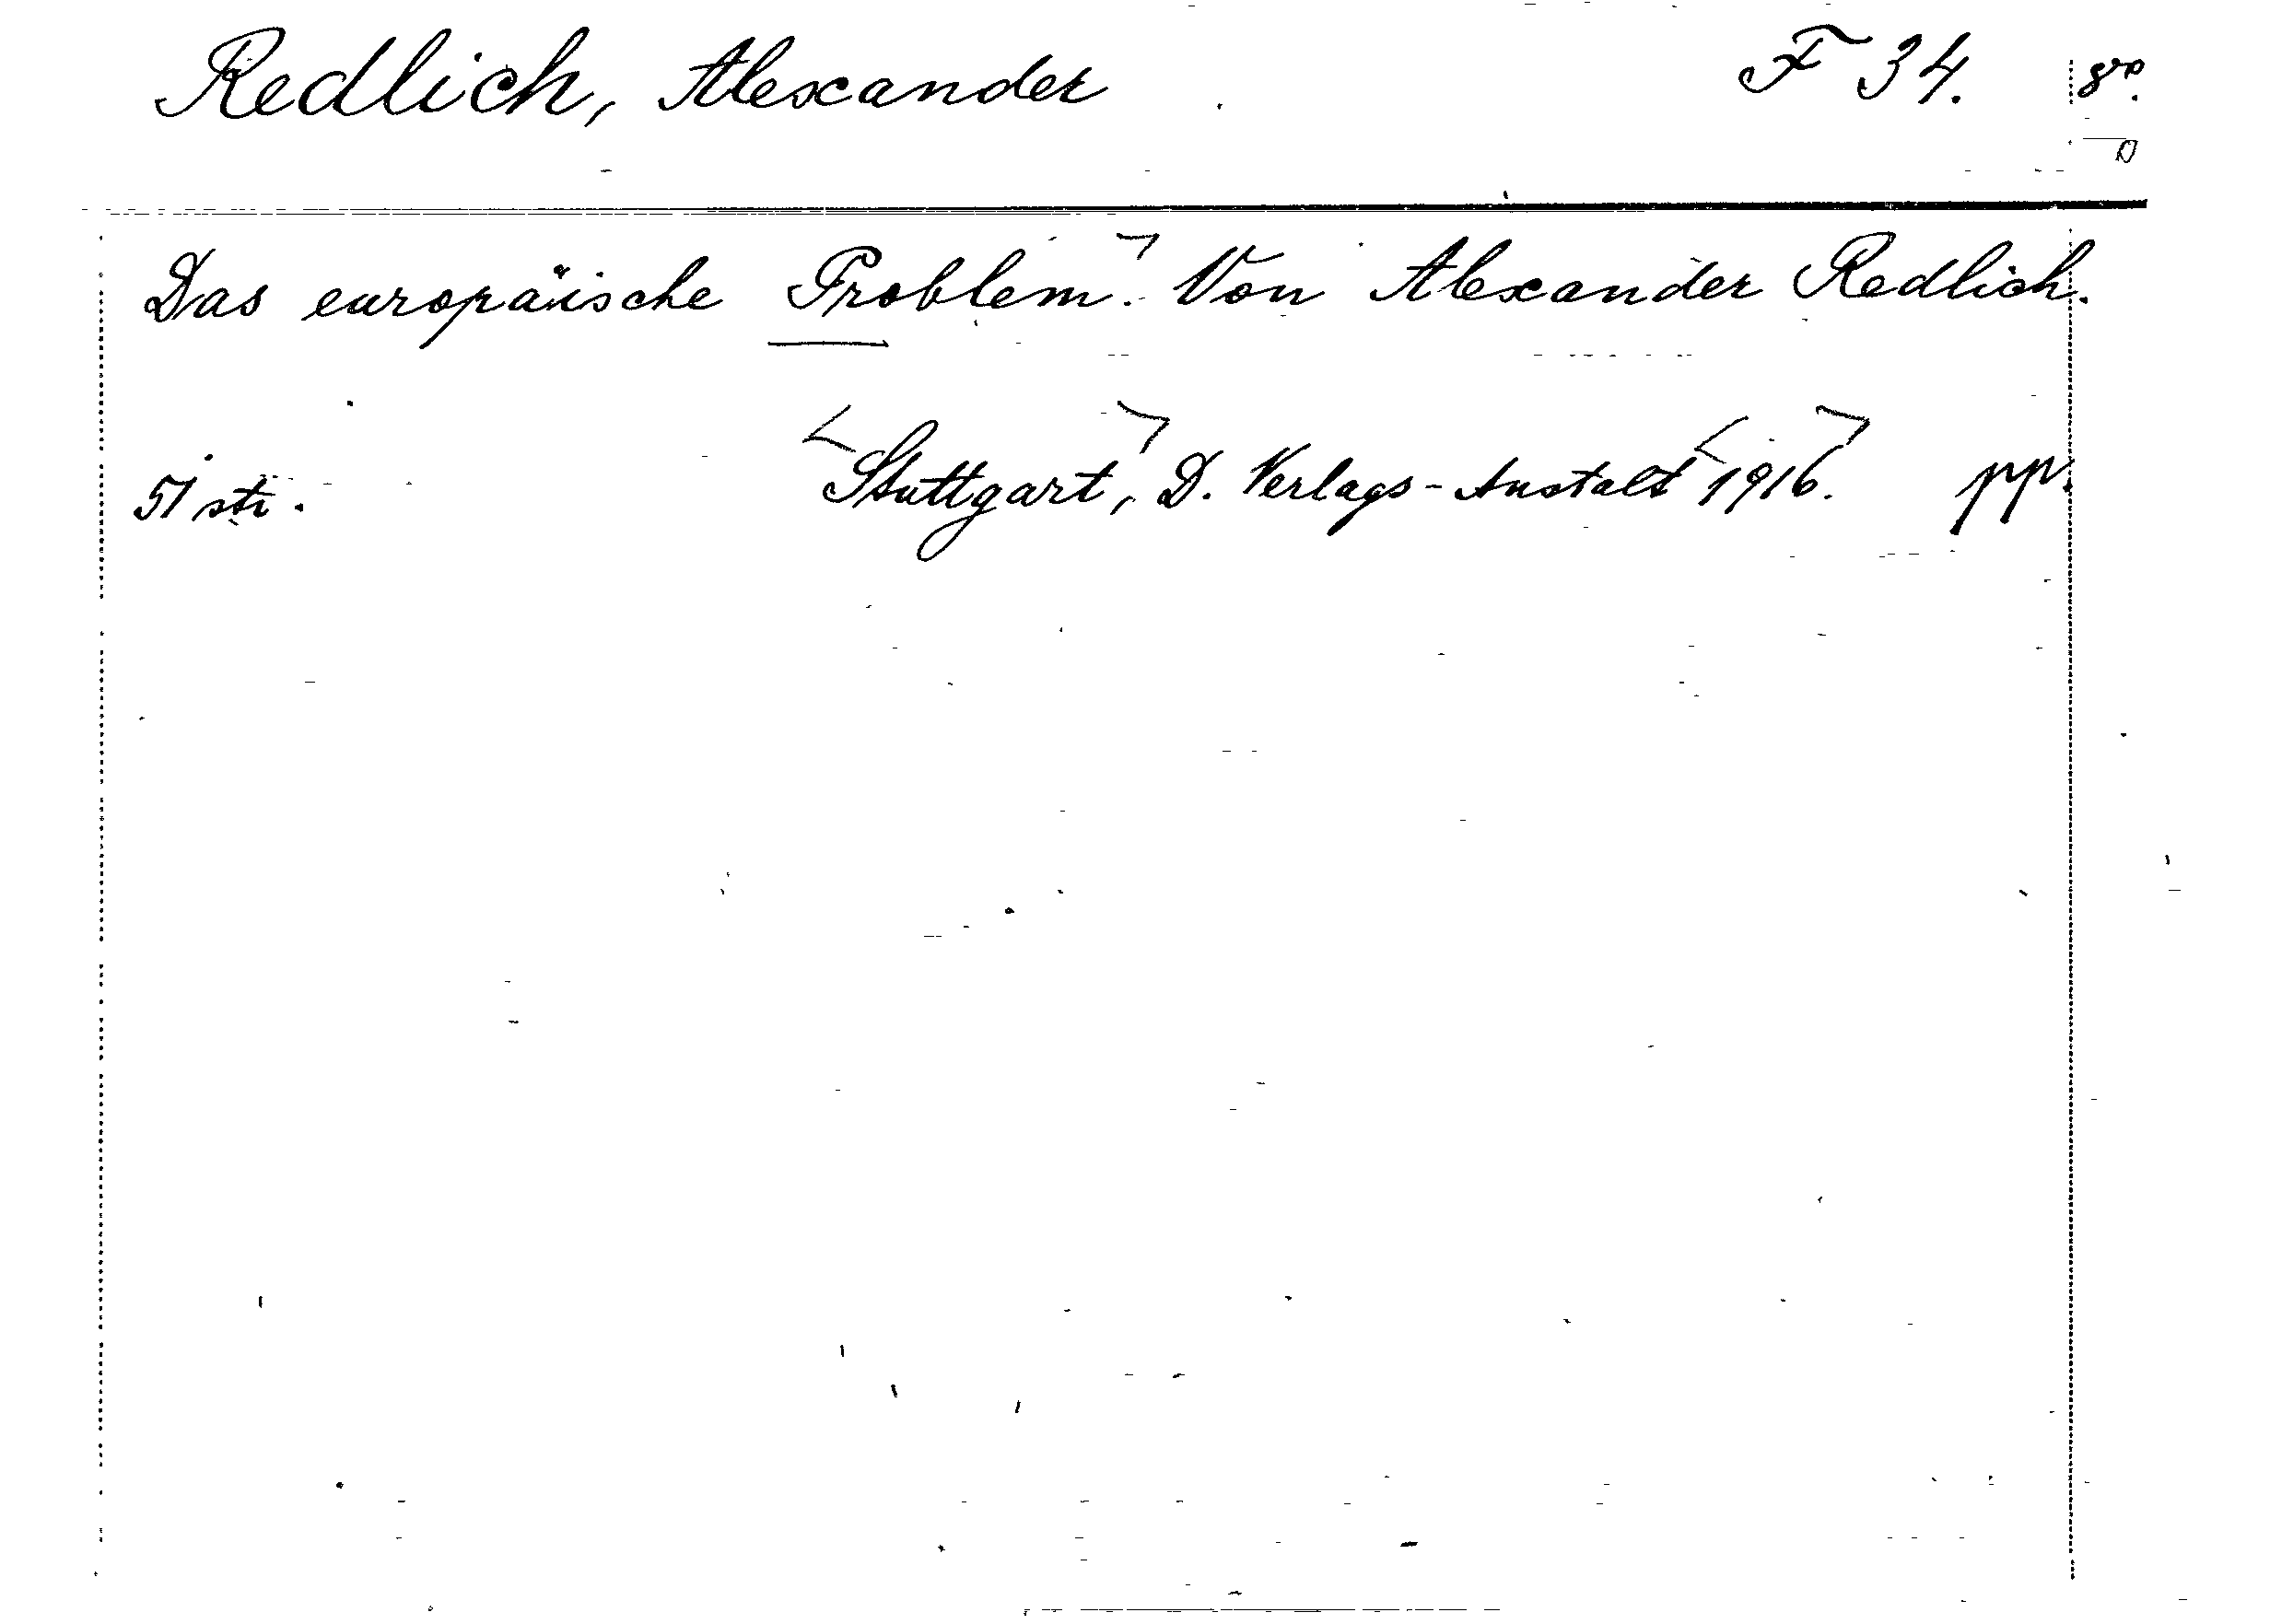 Redlich, Alexander F 34. 8º.
Das europäische Problem. Von Alexander Redlich.
51 str. Stuttgart, D. Verlags-Anstalt 1916. pp.